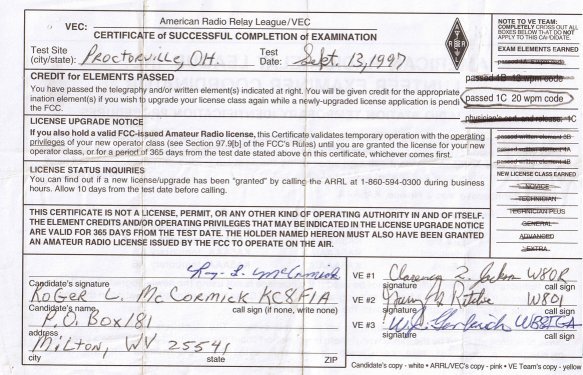 VEC: American Radio Relay League/VEC
CERTIFICATE OF SUCCESSFUL COMPLETION OF EXAMINATION
Test Site (city/state): Proctorville, OH. Test Date: Sept. 13, 1997
CREDIT for ELEMENTS PASSED
You have passed the telegraphy and/or written element(s) indicated at right. You will be given credit for the appropriate
ination element(s) if you wish to upgrade your license class again while a newly-upgraded license application is pendi
the FCC.
LICENSE UPGRADE NOTICE
If you also hold a valid FCC-issued Amateur Radio license, this Certificate validates temporary operation with the operating
privileges of your new operator class (see Section 97.9[b] of the FCC's Rules) until you are granted the license for your new
operator class, or for a period of 365 days from the test date stated above on this certificate, whichever comes first.
LICENSE STATUS INQUIRIES
You can find out if a new license/upgrade has been "granted" by calling the ARRL at 1-860-594-0300 during business
hours. Allow 10 days from the test date before calling.
THIS CERTIFICATE IS NOT A LICENSE, PERMIT, OR ANY OTHER KIND OF OPERATING AUTHORITY IN AND OF ITSELF.
THE ELEMENT CREDITS AND/OR OPERATING PRIVILEGES THAT MAY BE INDICATED IN THE LICENSE UPGRADE NOTICE
ARE VALID FOR 365 DAYS FROM THE TEST DATE. THE HOLDER NAMED HEREON MUST ALSO HAVE BEEN GRANTED
AN AMATEUR RADIO LICENSE ISSUED BY THE FCC TO OPERATE ON THE AIR.
NOTE TO VE TEAM:
COMPLETELY CROSS OUT ALL
BOXES BELOW THAT DO NOT
APPLY TO THIS CANDIDATE.
EXAM ELEMENTS EARNED
passed 1B
passed 1C 20 wpm code
physician's cert. and release: 1C
passed written element 3B
passed written element 4A
passed written element 4B
NEW LICENSE CLASS EARNED
NOVICE
TECHNICIAN
TECHNICIAN PLUS
GENERAL
ADVANCED
EXTRA
McCormick
Candidate's signature
Roger L. McCormick KC8FIA
Candidate's name call sign (if none, write none)
P.O. Box 181
address
Milton, WV 25541
city state ZIP
VE #1 Clarence Jackson
signature call sign
VE #2 Ritchie
signature call sign
VE #3
signature call sign
Candidate's copy - white • ARRL/VEC's copy - pink • VE Team's copy - yellow